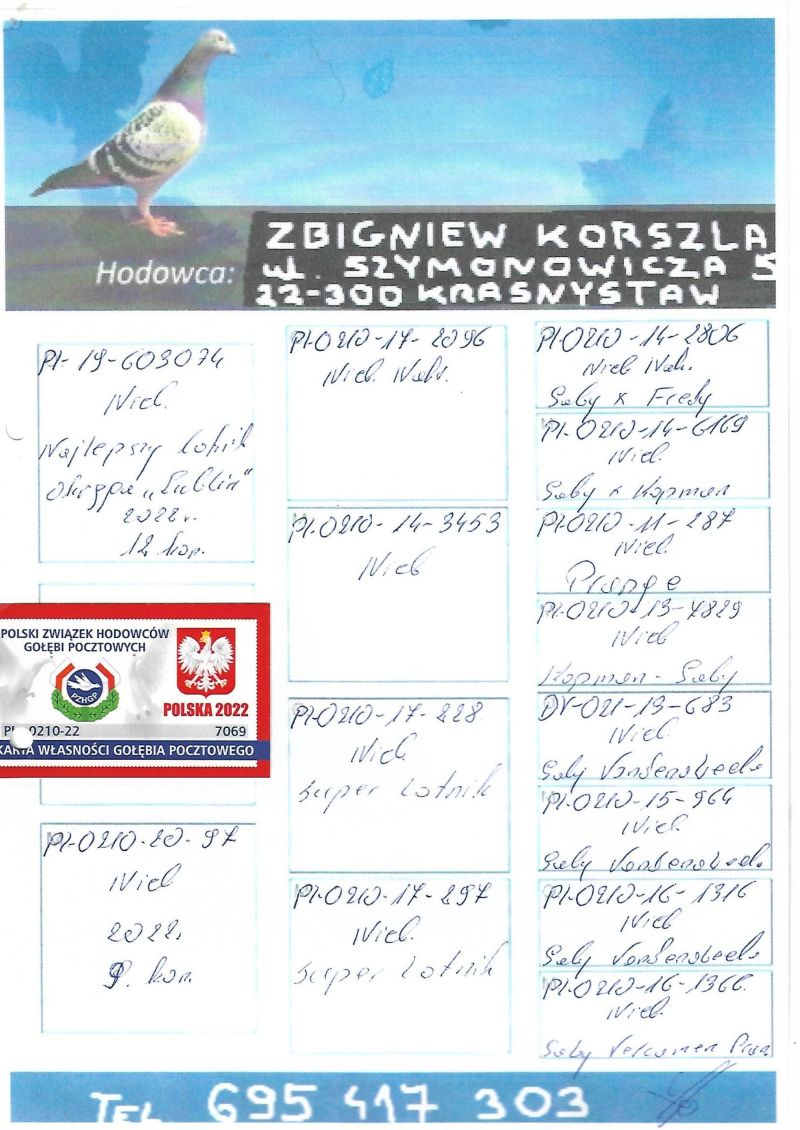 Hodowca:
ZBIGNIEW KORSZLA
ul. SZYMONOWICZA 5
22-300 KRASNYSTAW
Pl-19-603074
Nieb.
Najlepszy lotnik
okręgu „Lublin"
2022 r.
12 kon.
POLSKI ZWIĄZEK HODOWCÓW
GOŁĘBI POCZTOWYCH
PZHGP
POLSKA 2022
PL-0210-22 7069
KARTA WŁASNOŚCI GOŁĘBIA POCZTOWEGO
Pl-0210-20-97
Nieb
2022r.
9. kon.
Pl-0210-17-2096
Nieb. Nakr.
Pl-0210-14-3453
Nieb
Pl-0210-17-228
Nieb
super Lotnik
Pl-0210-17-297
Nieb.
super Lotnik
Pl-0210-14-2806
Nieb Nak.
Gaby x Fredy
Pl-0210-14-6169
Nieb.
Gaby x Kopman
Pl-0210-11-287
Nieb.
Prange
Pl-0210-13-4829
Nieb
Kopman - Gaby
DV-021-13-683
Nieb.
Gaby Vandenabeele
Pl-0210-15-964
Nieb.
Gaby Vandenabeele
Pl-0210-16-1316
Nieb
Gaby Vandenabeele
Pl-0210-16-1366
Nieb.
Gaby
TEL. 695 417 303